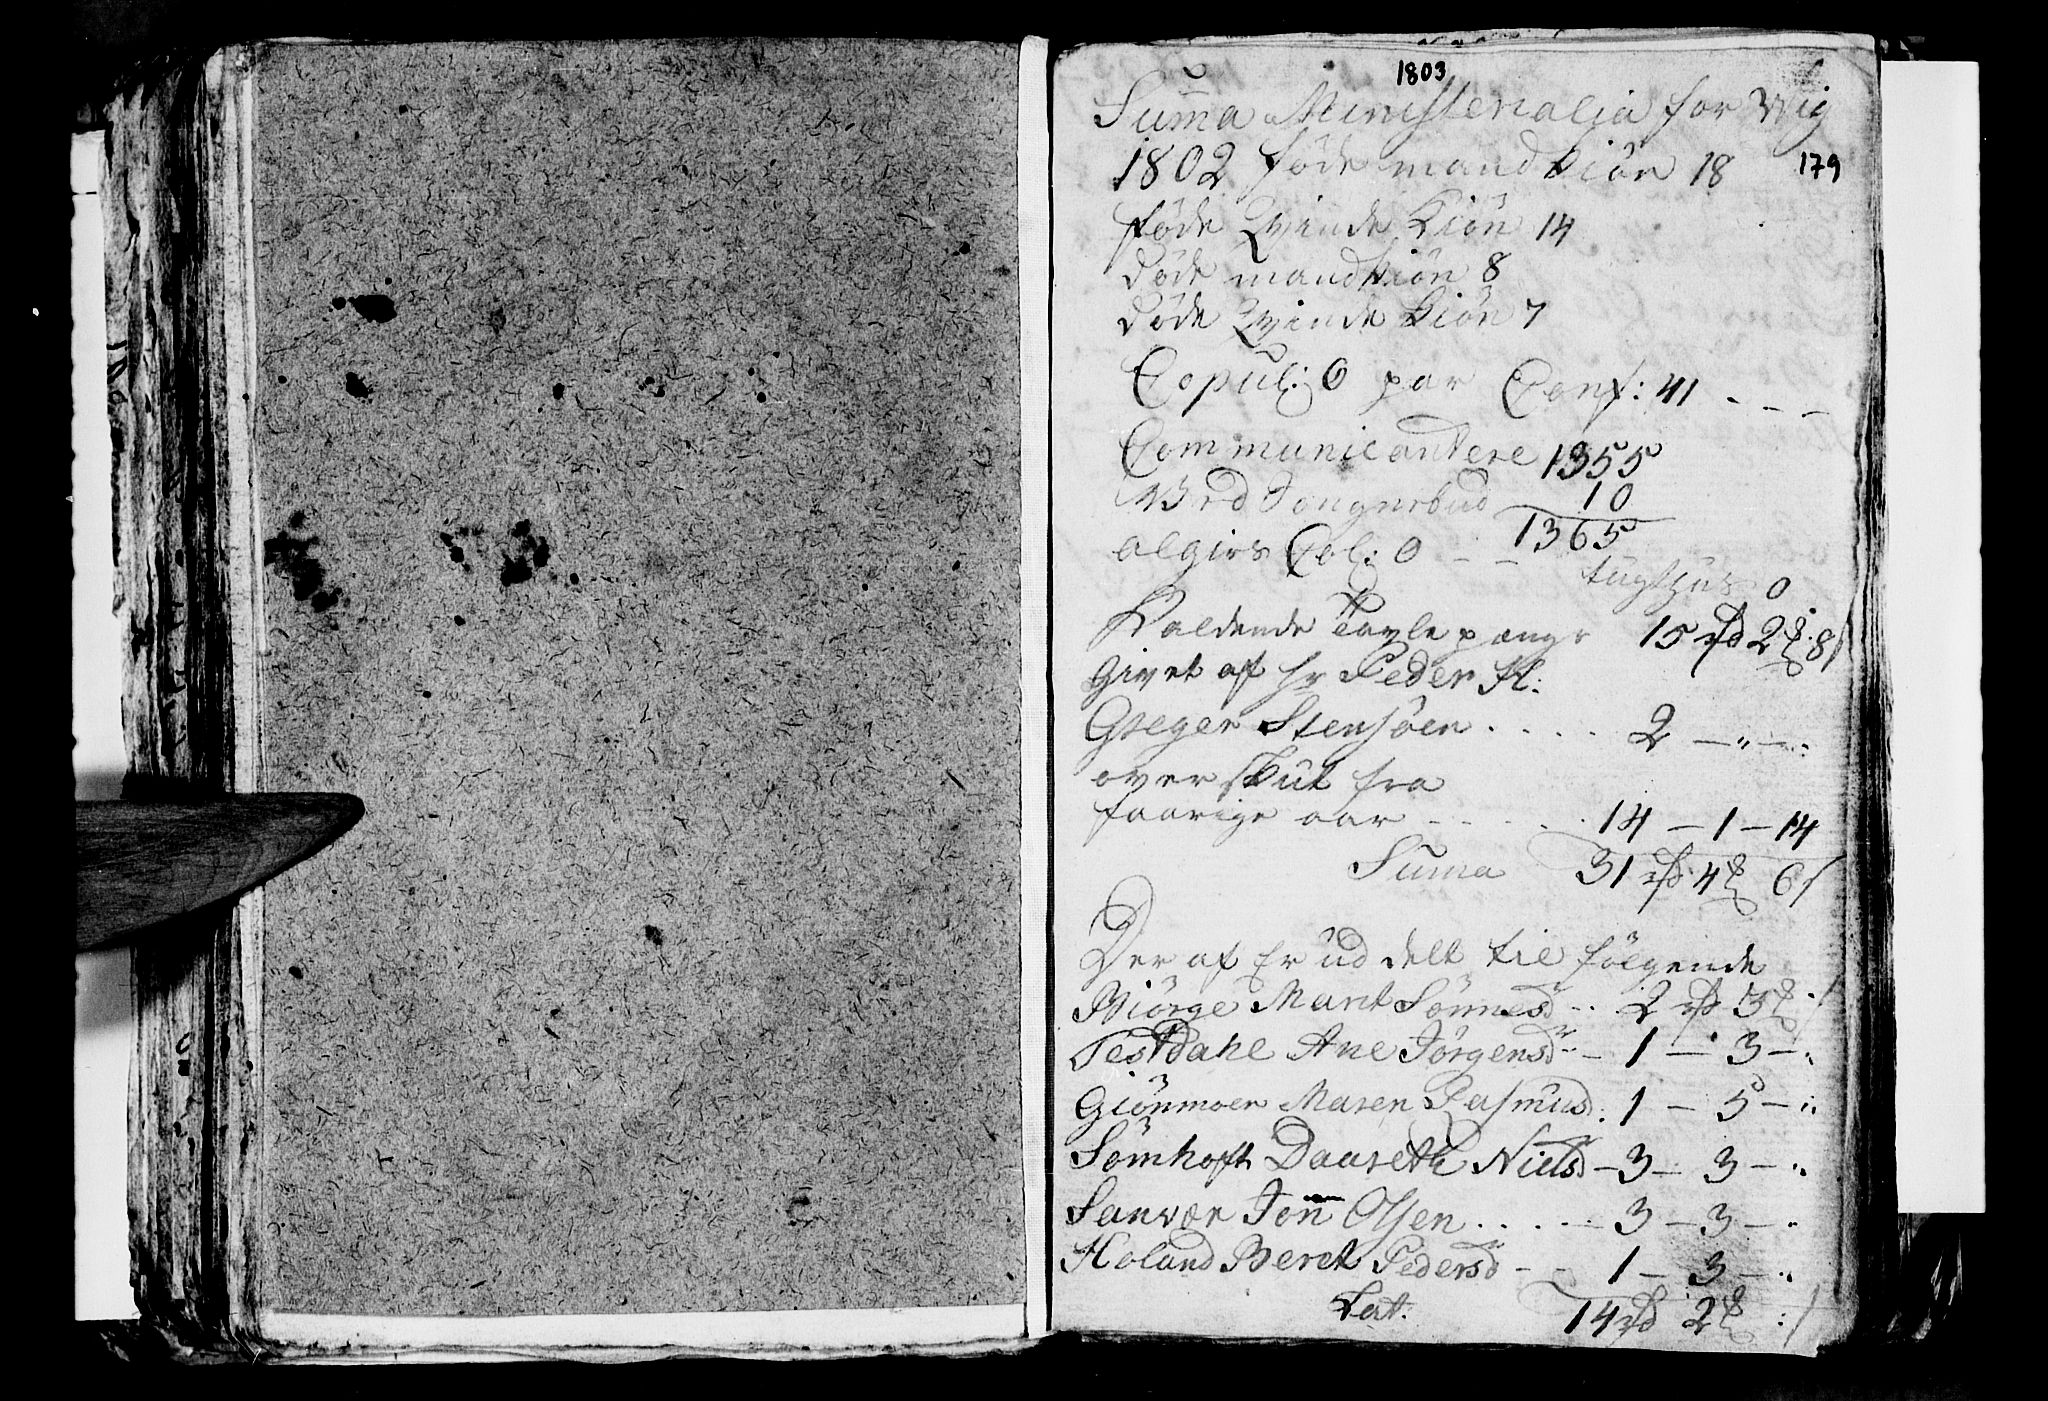 1803
Suma Ministerialia for Wig
1802 føde mandkiøn 18
179
føde Qvinde Kiøn 14
døde mandkiøn 8
døde Qvinde Kiøn 7
Copul: 0 par Conf: 41 - - -
Communicantere 1355
10
algiers Col: 0 - - 1365
tugthus 0
Faldende Tavle pænge 15 rd 2 8
givet af hr Peder H:
Greger Stensöen . . . . 2 — " —
over skut fra
faarige aar - - - - . . 14 — 1 — 14
Suma 31 rd 4 6
Der af Er ud delt til følgende
Biörge Marit Sönnesd - . . 2 rd 3
Testdahl Ane Jörgensd - - 1 — 3 — "
Giönmoen Maren Rasmusd . 1 — 5 — "
Sømhoft Daareth Nielsd — 3 — 3 — "
Sanvær Jon Olsen . . . . — 3 — 3 — "
Holand Beret Pedersd - - 1 — 3 — "
Lat. 14 rd 2